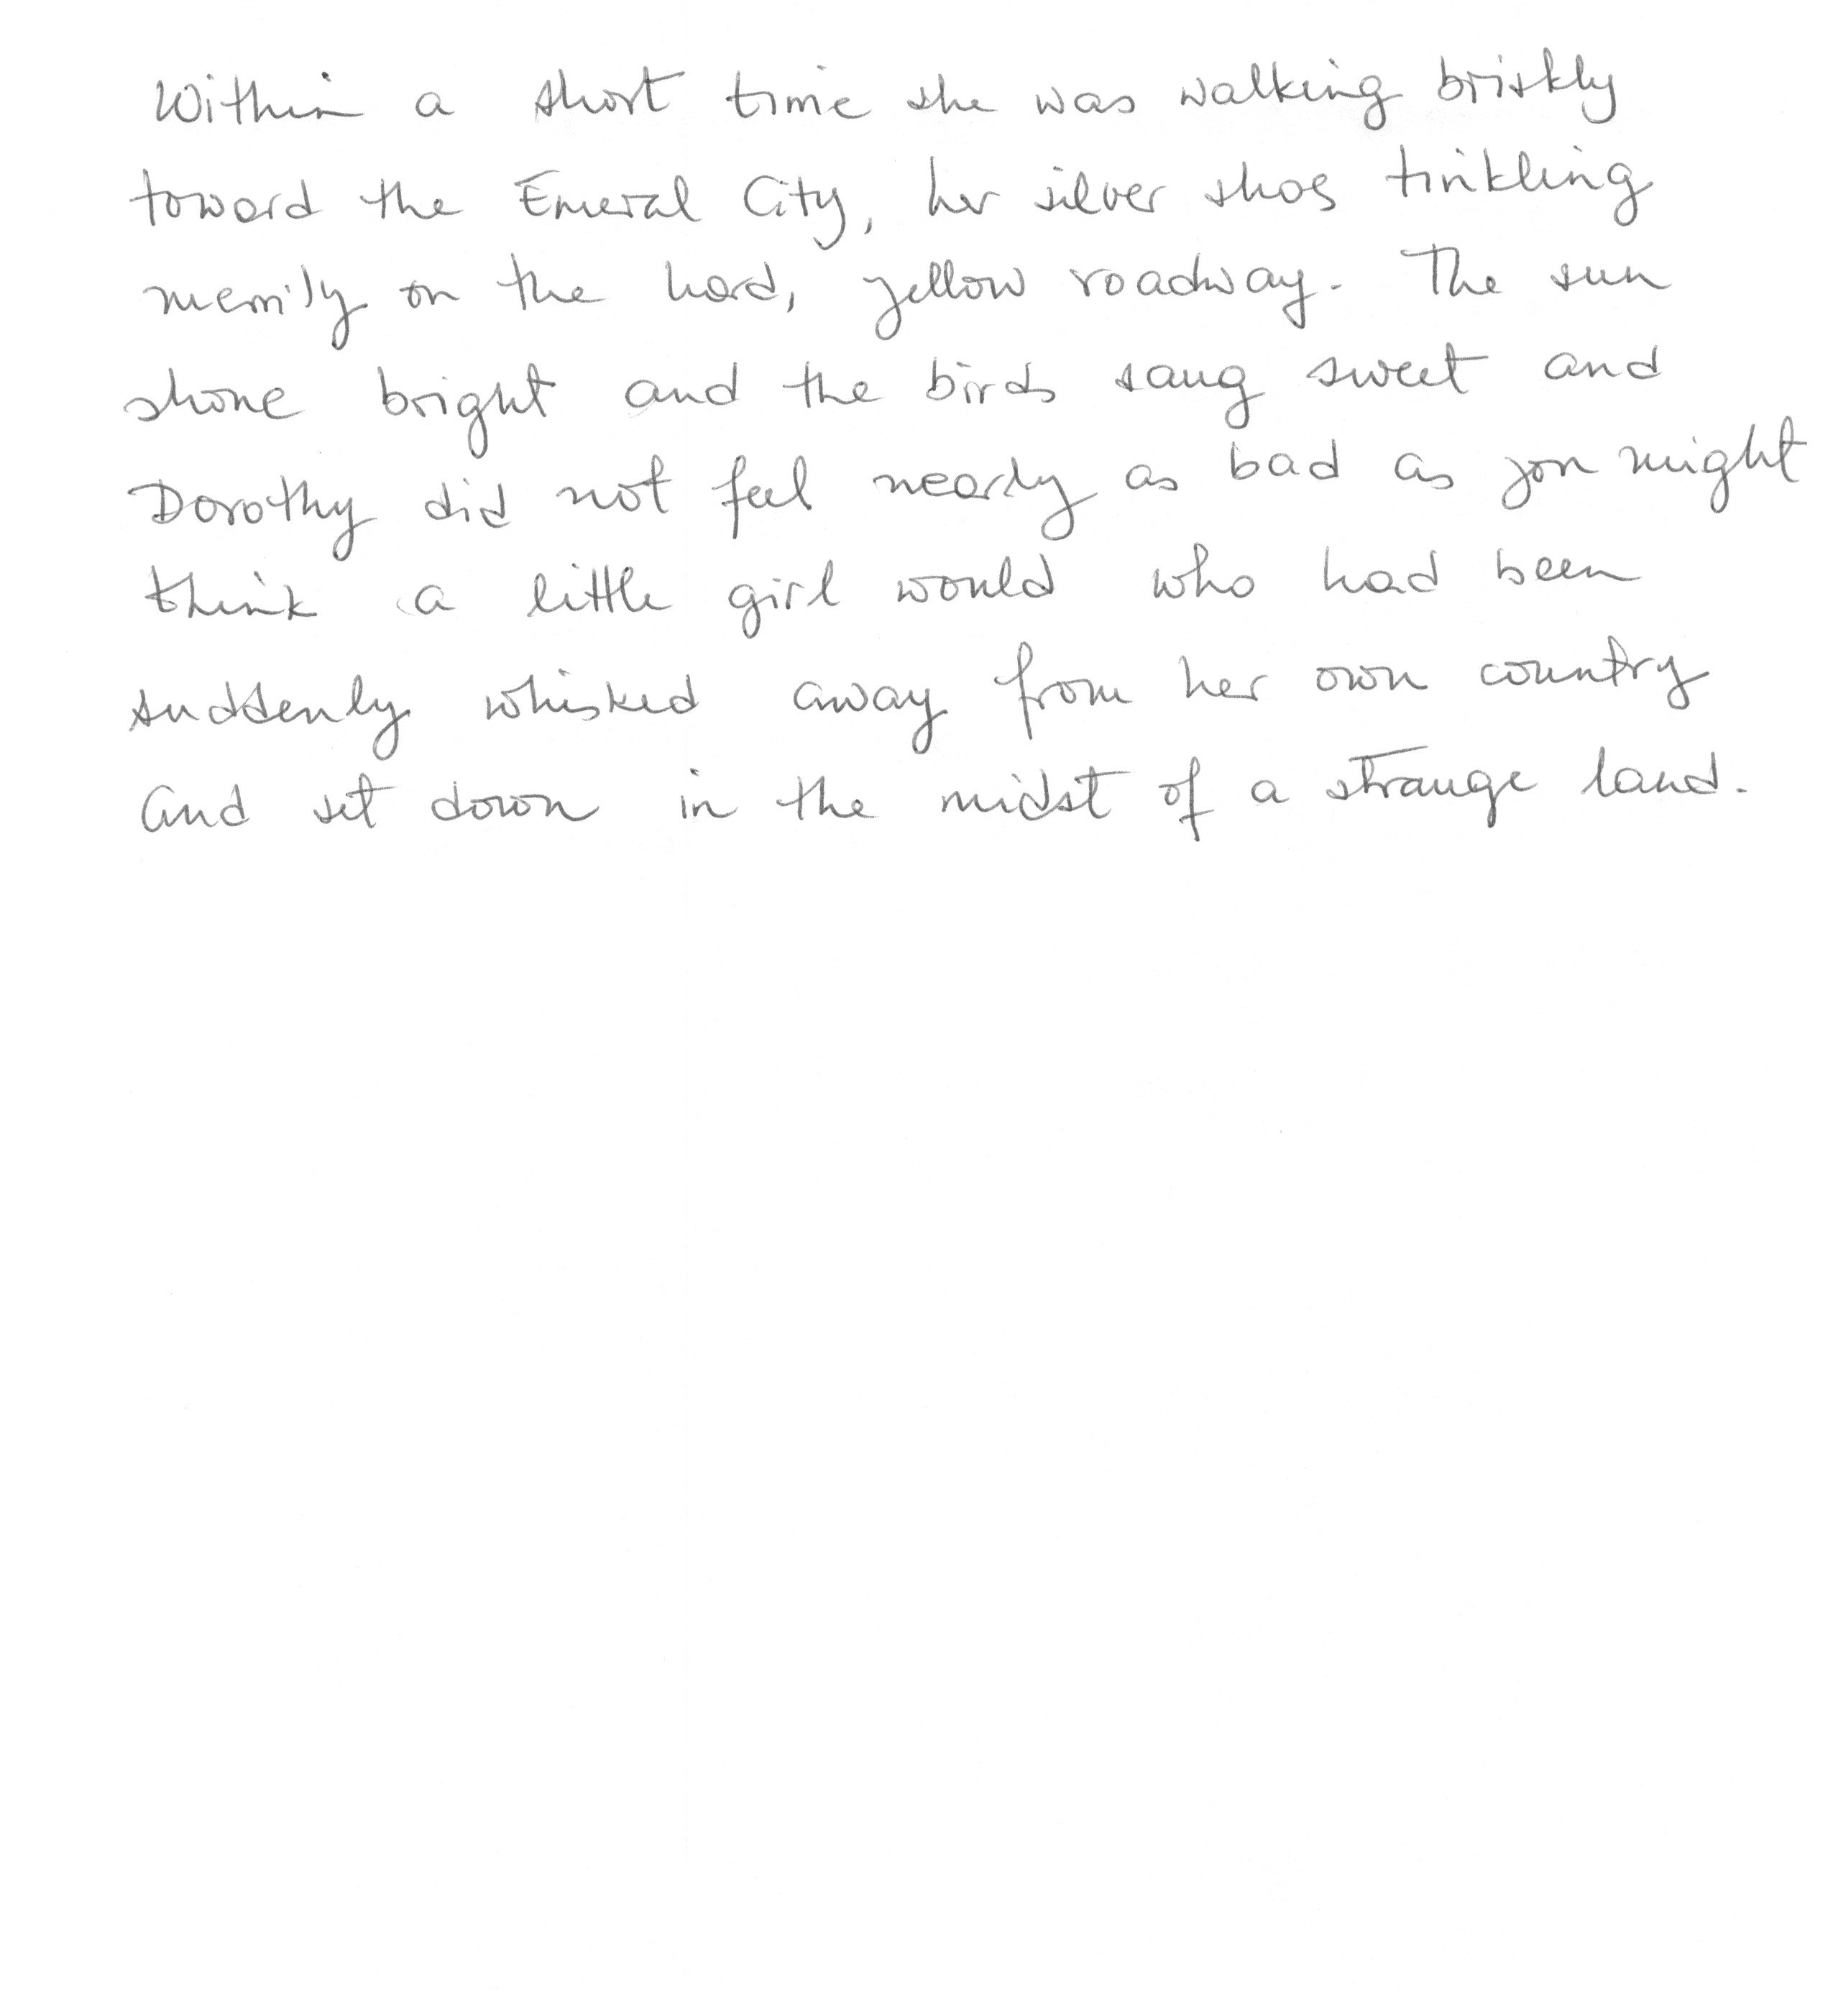 Within a short time she was walking briskly
toward the Emeral City, her silver shoes tinkling
merrily on the hard, yellow roadway. The sun
shone bright and the birds sang sweet and
Dorothy did not feel nearly as bad as you might
think a little girl would who had been
suddenly whisked away from her own country
and set down in the midst of a strange land.